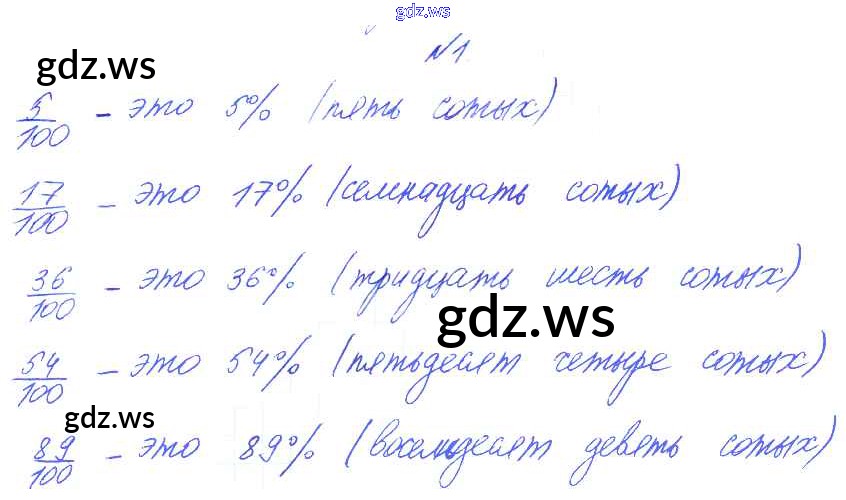 gdz.ws
№1.
gdz.ws
5/100 - это 5% (пять сотых)
17/100 - это 17% (семнадцать сотых)
36/100 - это 36% (тридцать шесть сотых)
gdz.ws
54/100 - это 54% (пятьдесят четыре сотых)
gdz.ws
89/100 - это 89% (восемьдесят девять сотых)